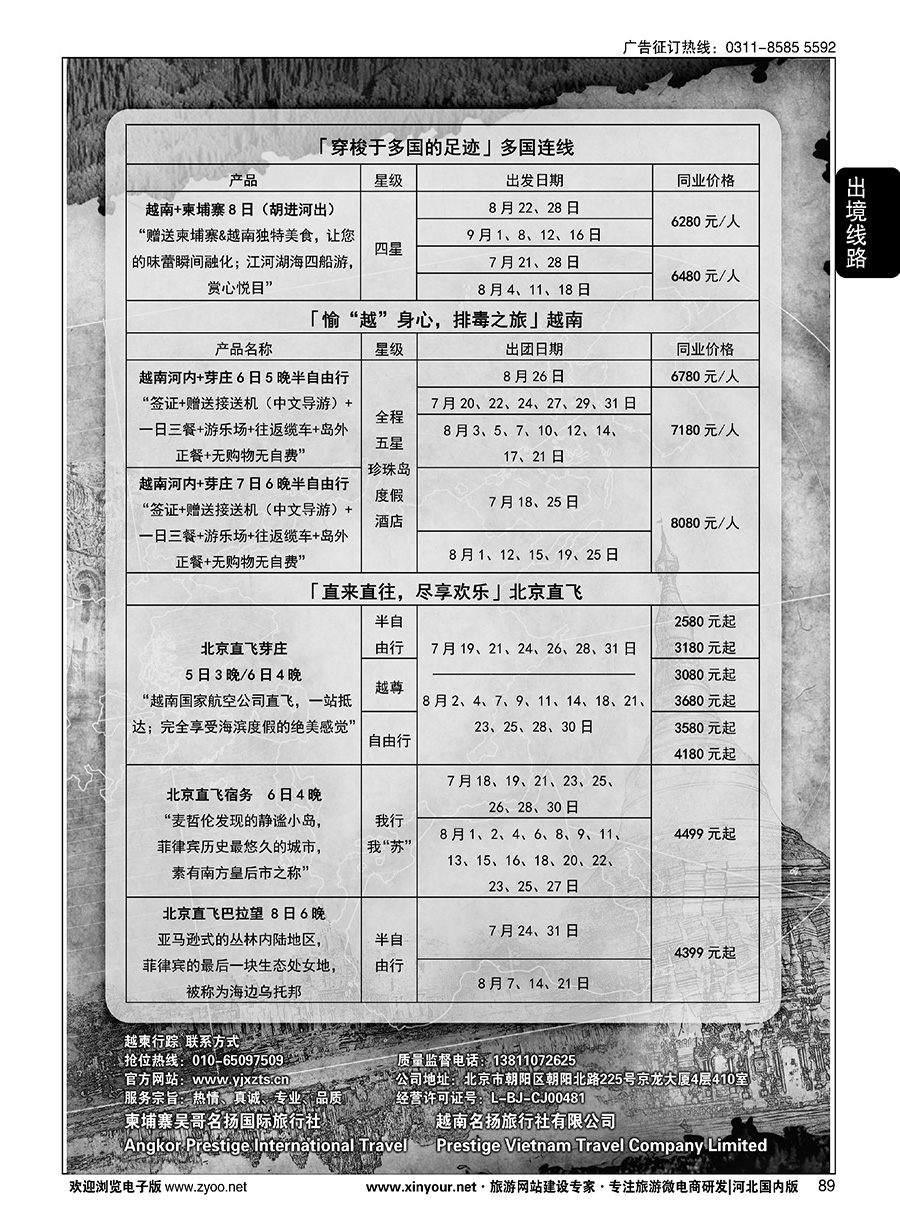 广告征订热线：0311-8585 5592
出境线路
「穿梭于多国的足迹」多国连线
产品 星级 出发日期 同业价格
越南+柬埔寨 8 日（胡进河出）
“赠送柬埔寨&越南独特美食，让您
的味蕾瞬间融化；江河湖海四船游，
赏心悦目”
四星
8 月 22、28 日
9 月 1、8、12、16 日
6280 元/人
7 月 21、28 日
8 月 4、11、18 日
6480 元/人
「愉“越”身心，排毒之旅」越南
产品名称 星级 出团日期 同业价格
越南河内+芽庄 6 日 5 晚半自由行
“签证+赠送接送机（中文导游）+
一日三餐+游乐场+往返缆车+岛外
正餐+无购物无自费”
全程
五星
珍珠岛
度假
酒店
8 月 26 日 6780 元/人
7 月 20、22、24、27、29、31 日
8 月 3、5、7、10、12、14、
17、21 日
7180 元/人
越南河内+芽庄 7 日 6 晚半自由行
“签证+赠送接送机（中文导游）+
一日三餐+游乐场+往返缆车+岛外
正餐+无购物无自费”
7 月 18、25 日
8 月 1、12、15、19、25 日
8080 元/人
「直来直往，尽享欢乐」北京直飞
北京直飞芽庄
5 日 3 晚/6 日 4 晚
“越南国家航空公司直飞，一站抵
达；完全享受海滨度假的绝美感觉”
半自
由行
越尊
自由行
7 月 19、21、24、26、28、31 日
8 月 2、4、7、9、11、14、18、21、
23、25、28、30 日
2580 元起
3180 元起
3080 元起
3680 元起
3580 元起
4180 元起
北京直飞宿务 6 日 4 晚
“麦哲伦发现的静谧小岛，
菲律宾历史最悠久的城市，
素有南方皇后市之称”
我行
我“苏”
7 月 18、19、21、23、25、
26、28、30 日
8 月 1、2、4、6、8、9、11、
13、15、16、18、20、22、
23、25、27 日
4499 元起
北京直飞巴拉望 8 日 6 晚
亚马逊式的丛林内陆地区，
菲律宾的最后一块生态处女地，
被称为海边乌托邦
半自
由行
7 月 24、31 日
8 月 7、14、21 日
4399 元起
越柬行踪 联系方式
抢位热线：010-65097509 质量监督电话：13811072625
官方网站：www.yjxzts.cn 公司地址：北京市朝阳区朝阳北路225号京龙大厦4层410室
服务宗旨：热情、真诚、专业、品质 经营许可证号：L-BJ-CJ00481
柬埔寨吴哥名扬国际旅行社 越南名扬旅行社有限公司
Angkor Prestige International Travel Prestige Vietnam Travel Company Limited
欢迎浏览电子版 www.zyoo.net www.xinyour.net · 旅游网站建设专家 · 专注旅游微电商研发|河北国内版 89